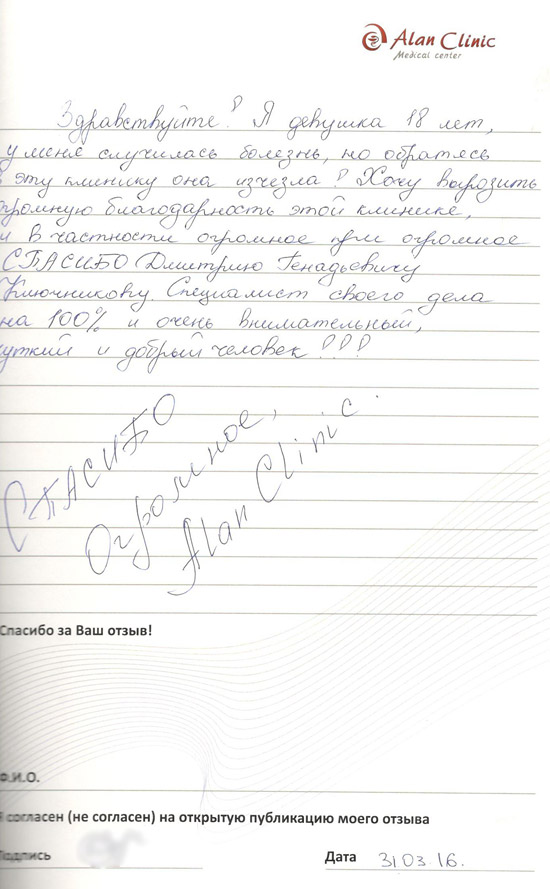 Alan Clinic
Medical center
Здравствуйте! Я девушка 18 лет,
у меня случилась болезнь, но обратясь
в эту клинику она изчезла! Хочу вырозить
огромную благодарность этой клинике,
и в частности огромное при огромное
СПАСИБО Дмитрию Генадьевичу
Ключникову. Специалист своего дела
на 100% и очень внимательный,
чуткий и добрый человек!!!
СПАСИБО
Огромное,
Alan Clinic.
Спасибо за Ваш отзыв!
Ф.И.О.
Я согласен (не согласен) на открытую публикацию моего отзыва
Подпись
Дата 31.03.16.